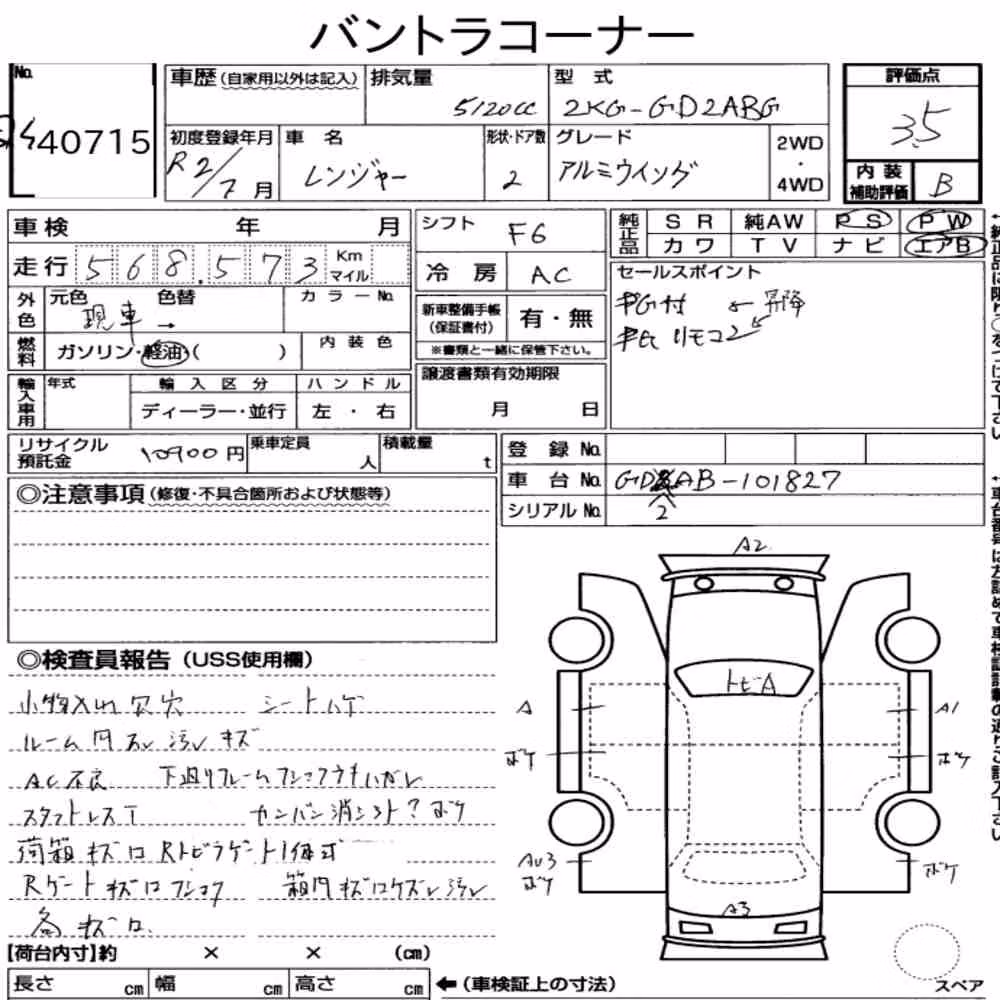 バントラコーナー
No. 40715
車歴 (自家用以外は記入)
排気量 5120cc
型式 2KG-GD2ABG
評価点 3.5
内装補助評価 B
初度登録年月 R2/7月
車名 レンジャー
形状・ドア数 2
グレード アルミウイング
2WD・4WD
車検 年 月
シフト F6
純正品 SR 純AW PS PW
カワ TV ナビ エアB
走行 568,573 Km マイル
冷房 AC
セールスポイント
PG付 ← 昇降
リモコン
外色 元色 現車→ 色替 カラーNo.
新車整備手帳(保証書付) 有・無
※書類と一緒に保管下さい。
燃料 ガソリン・軽油・( )
内装色
輸入車用 年式 輸入区分 ハンドル
ディーラー・並行 左・右
譲渡書類有効期限
月 日
リサイクル預託金 10900円
乗車定員 人
積載量 t
登録No.
車台No. GD AB-101827
2
シリアルNo.
◎注意事項 (修復・不具合箇所および状態等)
◎検査員報告 (USS使用欄)
小物入れ 穴 シートハゲ
ルーム内 スレ 汚レ キズ
AC不良 下廻りフレーム
スタットレスT カンバン消シアト? ボケ
荷箱 キズ ロ Rトビラゲート1体式
Rゲート キズ ロ 箱内 キズ ロ ケズレ 汚レ
各 キズ ロ
A2
トビA
A
A1
ボケ
ボケ
AU3
ボケ
ボケ
A3
スペア
【荷台内寸】約 × × (cm)
長さ cm 幅 cm 高さ cm ←(車検証上の寸法)